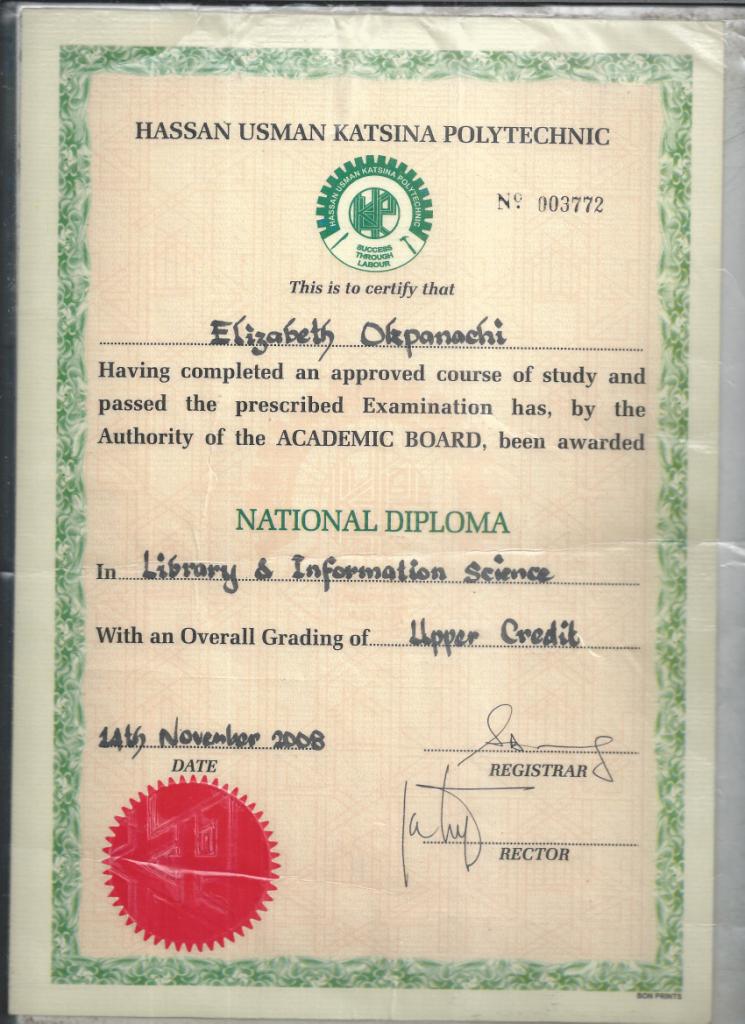 HASSAN USMAN KATSINA POLYTECHNIC
HASSAN USMAN KATSINA POLYTECHNIC
SUCCESS
THROUGH
LABOUR
Nº 003772
This is to certify that
Elizabeth Okpanachi
Having completed an approved course of study and
passed the prescribed Examination has, by the
Authority of the ACADEMIC BOARD, been awarded
NATIONAL DIPLOMA
In Library & Information Science
With an Overall Grading of Upper Credit
14th November 2008
DATE
REGISTRAR
RECTOR
BON PRINTS